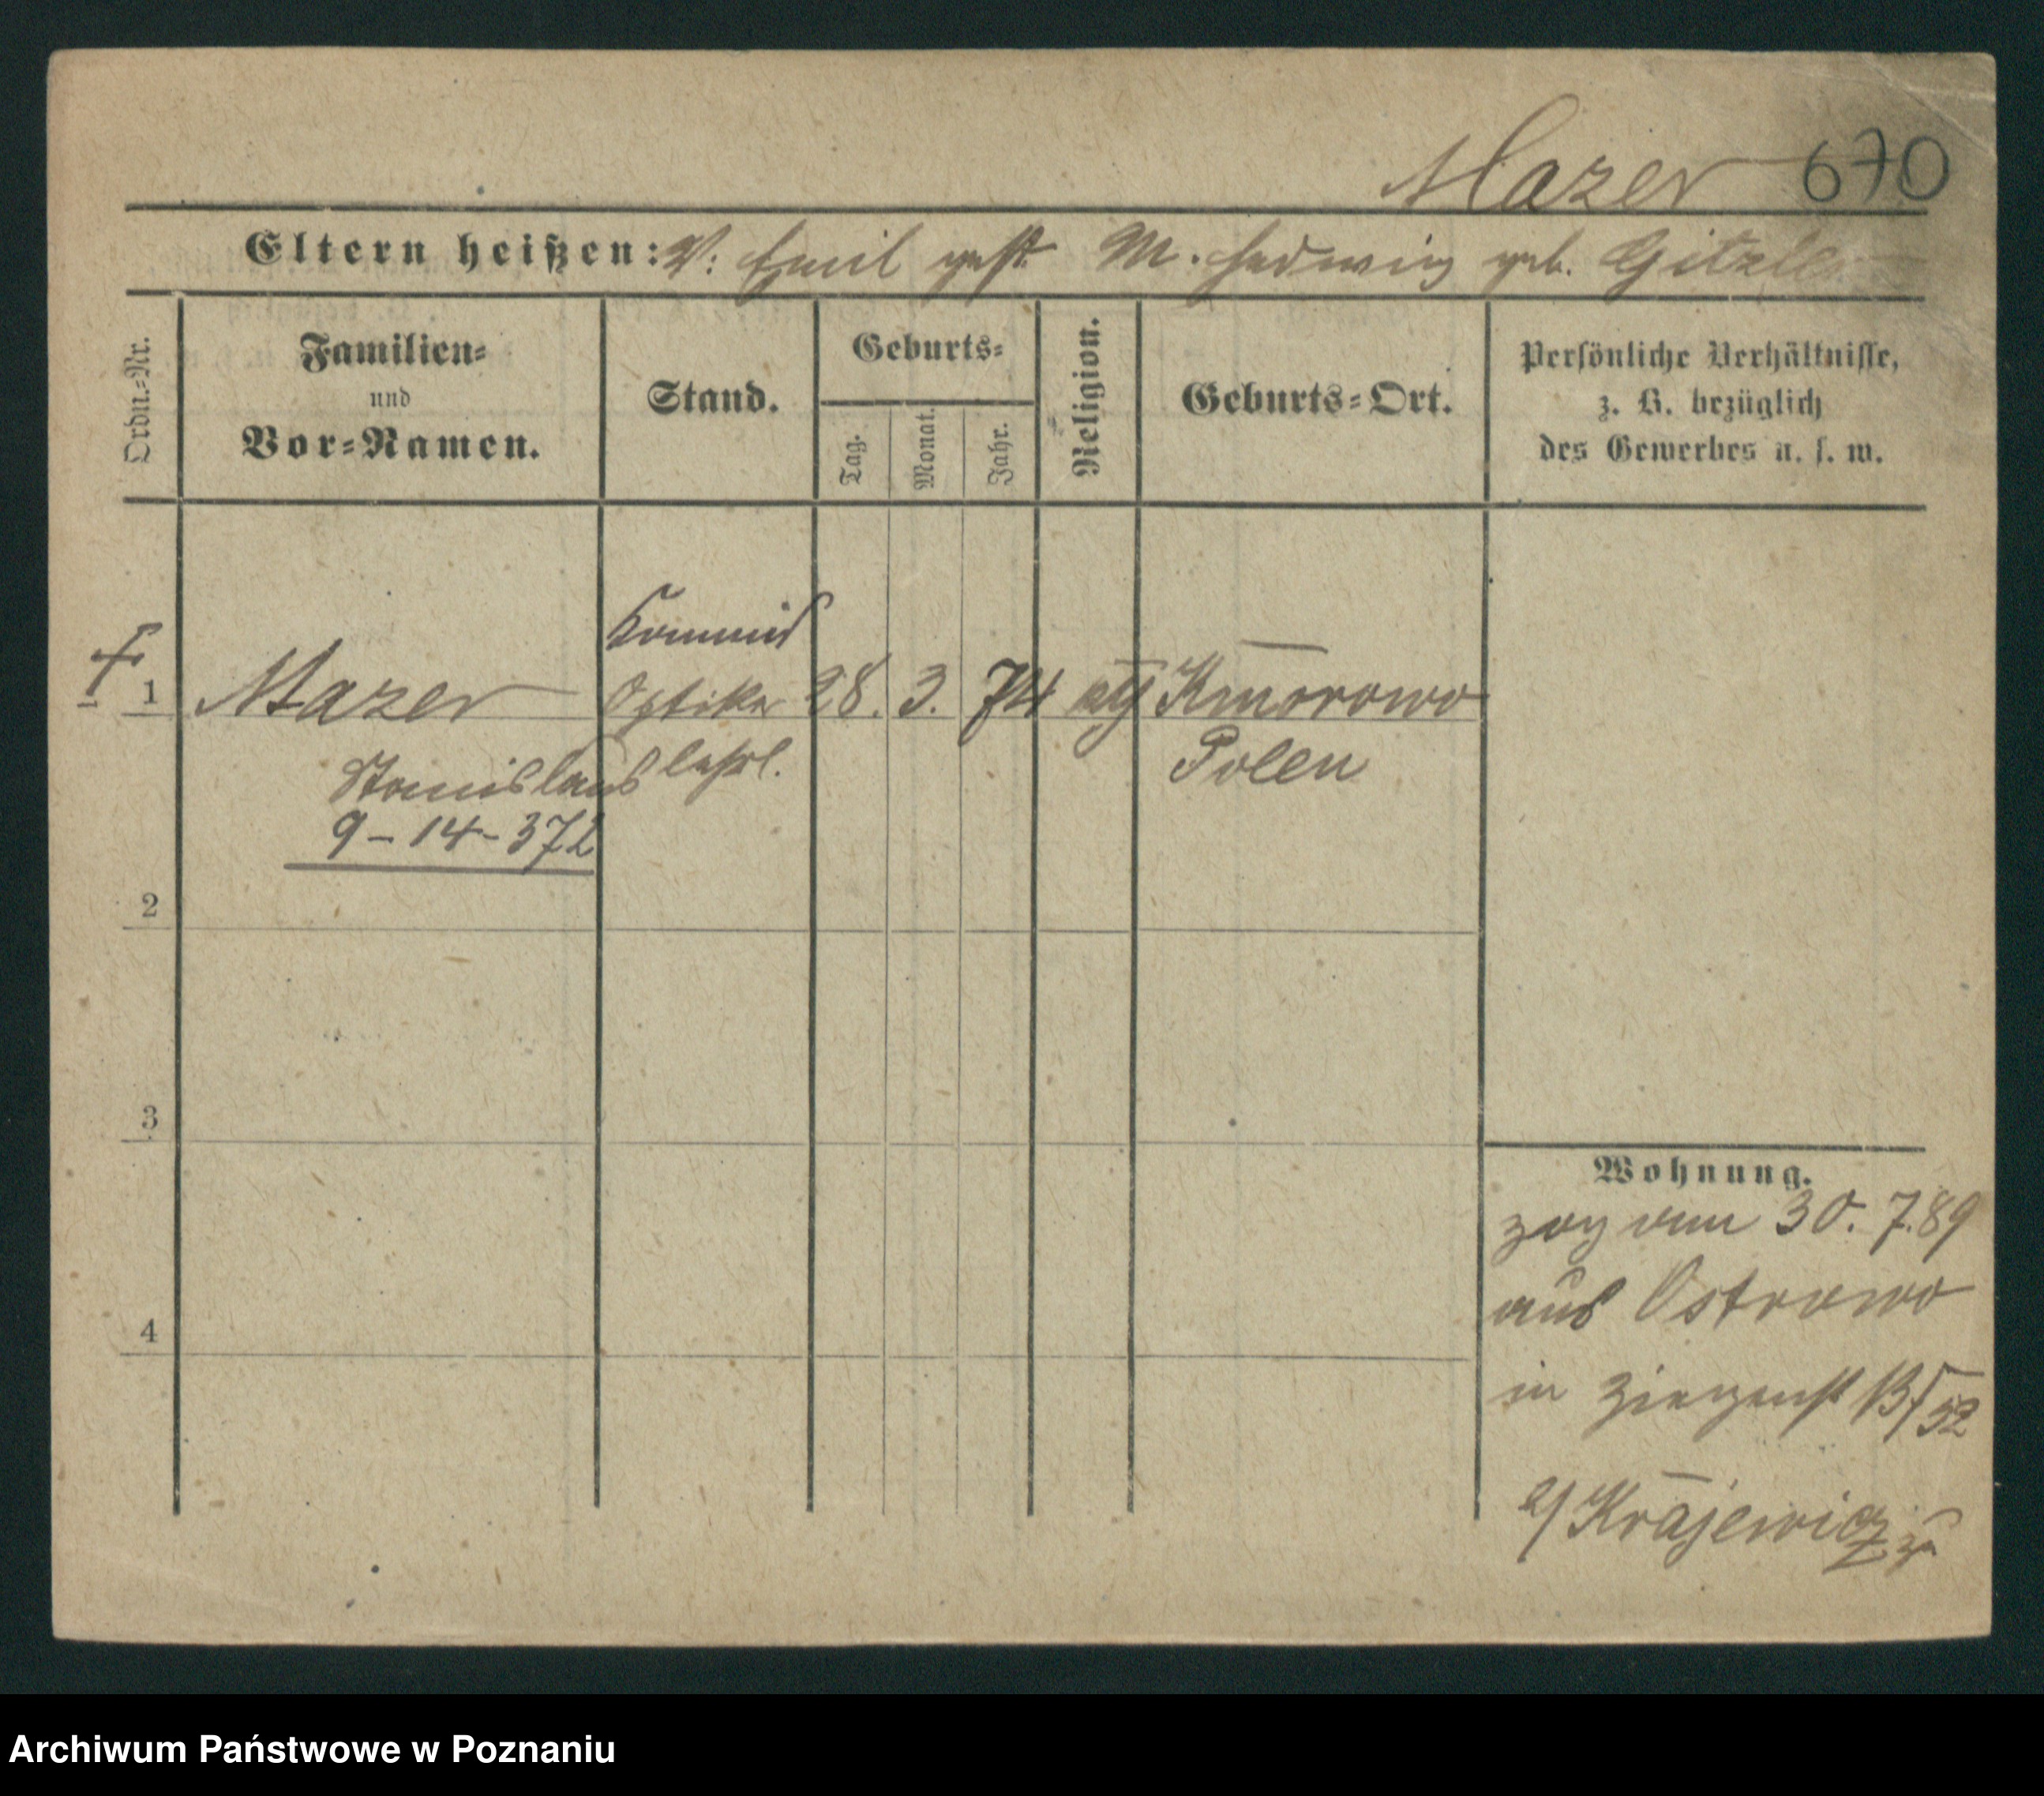 Mazer 670
Eltern heißen: V: Emil gest. M. Hedwig geb. Gitzler
Ordn.=Nr.
Familien=
und
Vor=Namen.
Stand.
Geburts=
Tag.
Monat.
Jahr.
Religion.
Geburts=Ort.
Persönliche Verhältnisse,
z. B. bezüglich
des Gewerbes u. s. w.
Kommis
1 Mazer Optiker 28. 3. 74 Kmorowo
Stanislaus lehrl. Polen
9-14-372
2
3
4
Wohnung.
zog vom 30. 7. 89
aus Ostrowo
in Ziegenst
Krajewicz
Archiwum Państwowe w Poznaniu